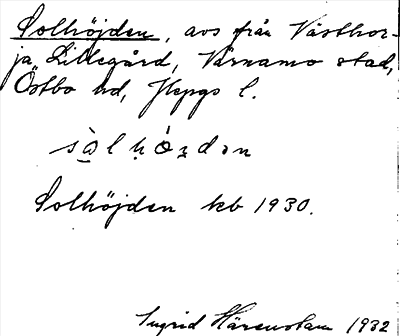 Solhöjden, avs från Västhor-
ja, Lillegård, Värnamo stad,
Östbo hd, Jkpgs l.
Solhöjden kb 1930.
Ingrid Härenstam 1932